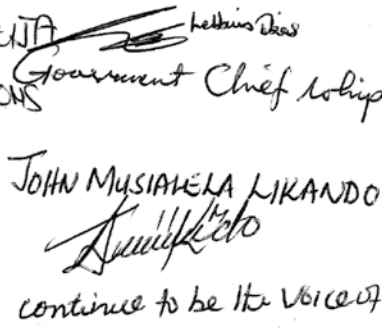 Government Chief whip
ONS
JOHN MUSIALELA LIKANDO
continue to be the voice of